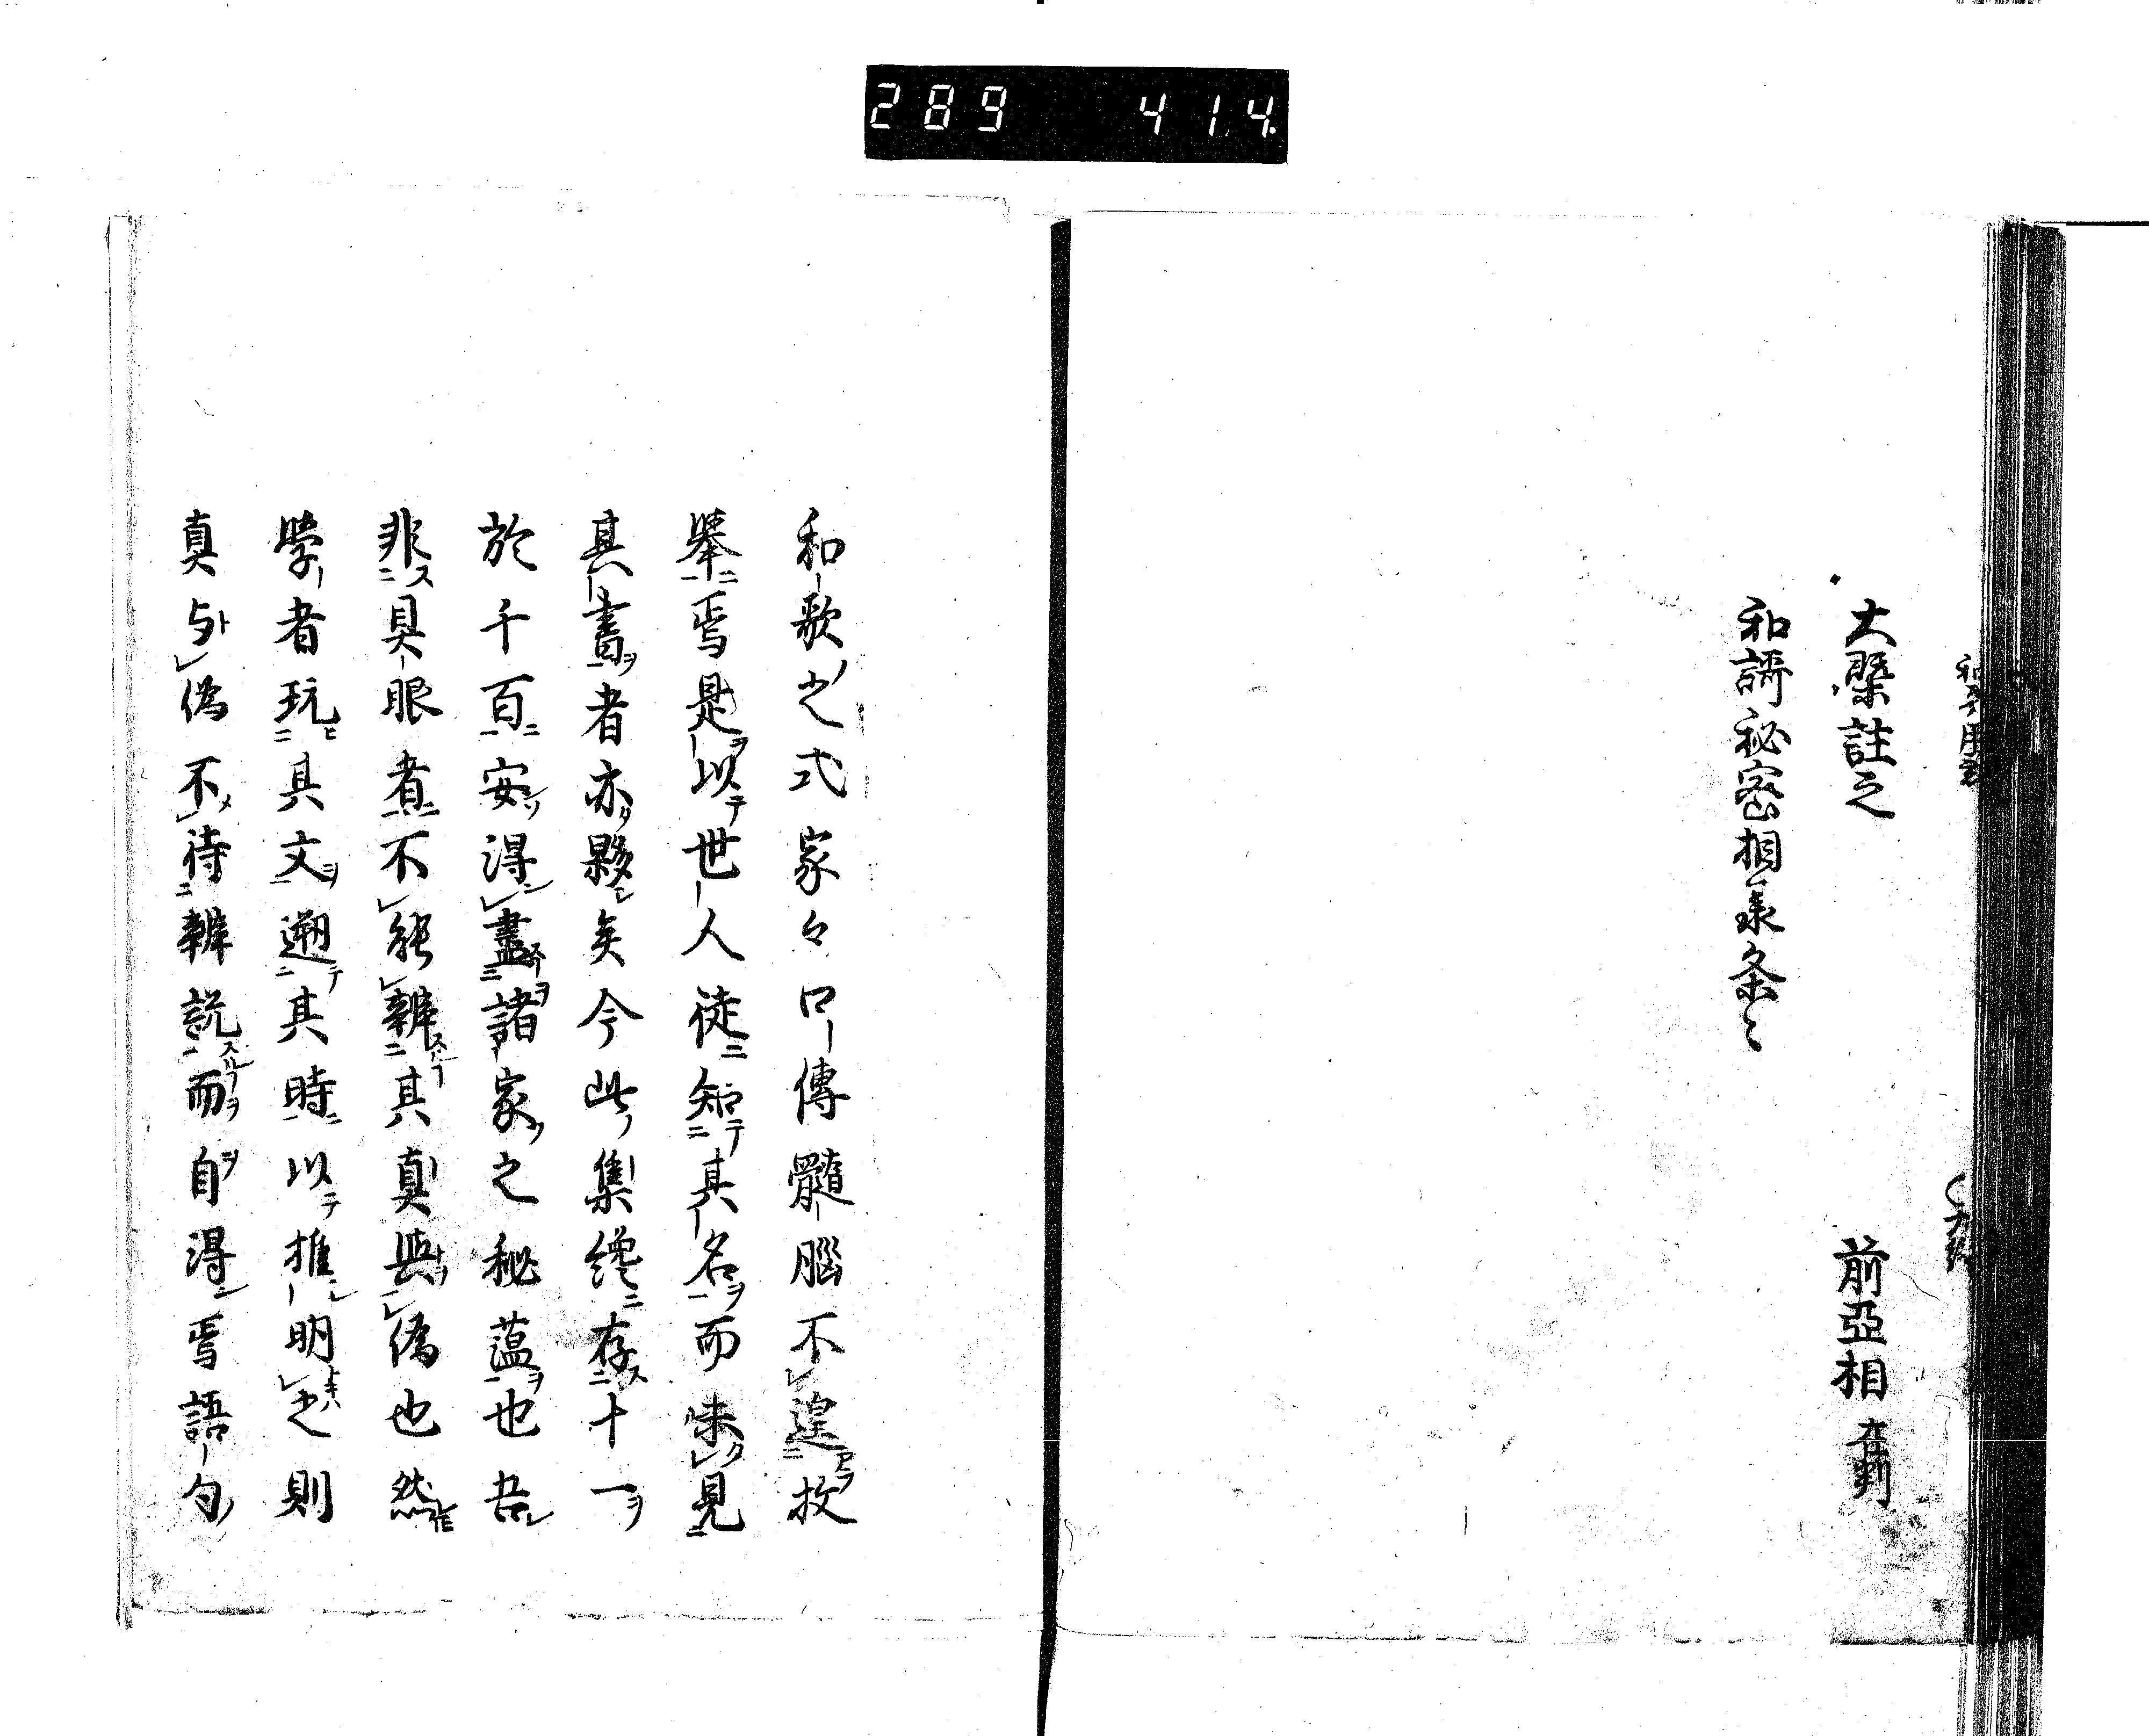 289 414
大槩註之 前亞相 在判
和謌秘密相承条々
和歌之式家々口傳髓腦不遑枚
擧焉是以世人徒知其名而未見
其書者亦夥矣今此集纔存十一
於千百安得盡諸家之秘蘊也吾
非具眼者不能辨其真與偽也然
學者玩其文遡其時以推明之則
真与偽不待辨説而自得焉語句